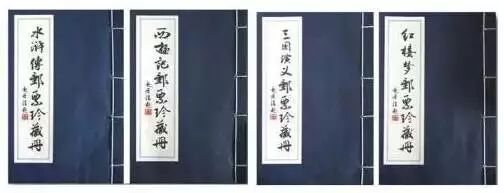 水浒傳郵票珍藏冊
西游記郵票珍藏冊
三國演义郵票珍藏冊
红楼梦郵票珍藏冊